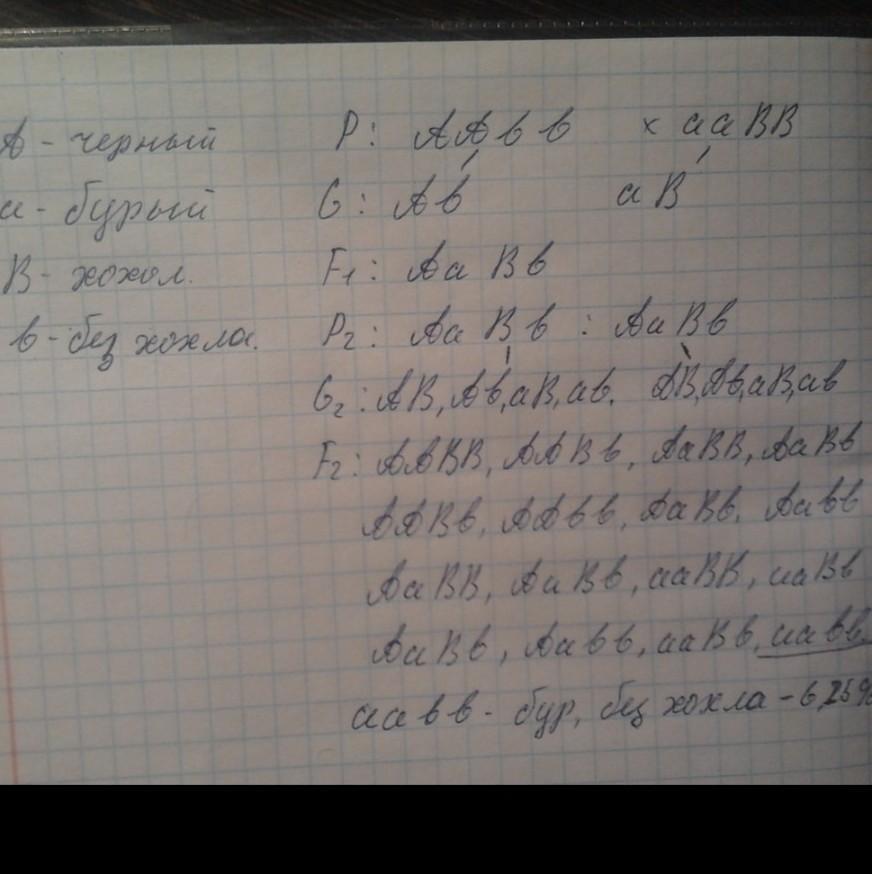 A - черный P: AAвв × aaBB
a - бурый G: Aв aB
B - хохол. F1: AaBв
в - без хохла. P2: AaBв : AaBв
G2: AB, Aв, aB, aв. AB, Aв, aB, aв
F2: AABB, AABв, AaBB, AaBв
AABв, AAвв, AaBв, Aaвв
AaBB, AaBв, aaBB, aaBв
AaBв, Aaвв, aaBв, aaвв
aaвв - бур, без хохла - 6,25%